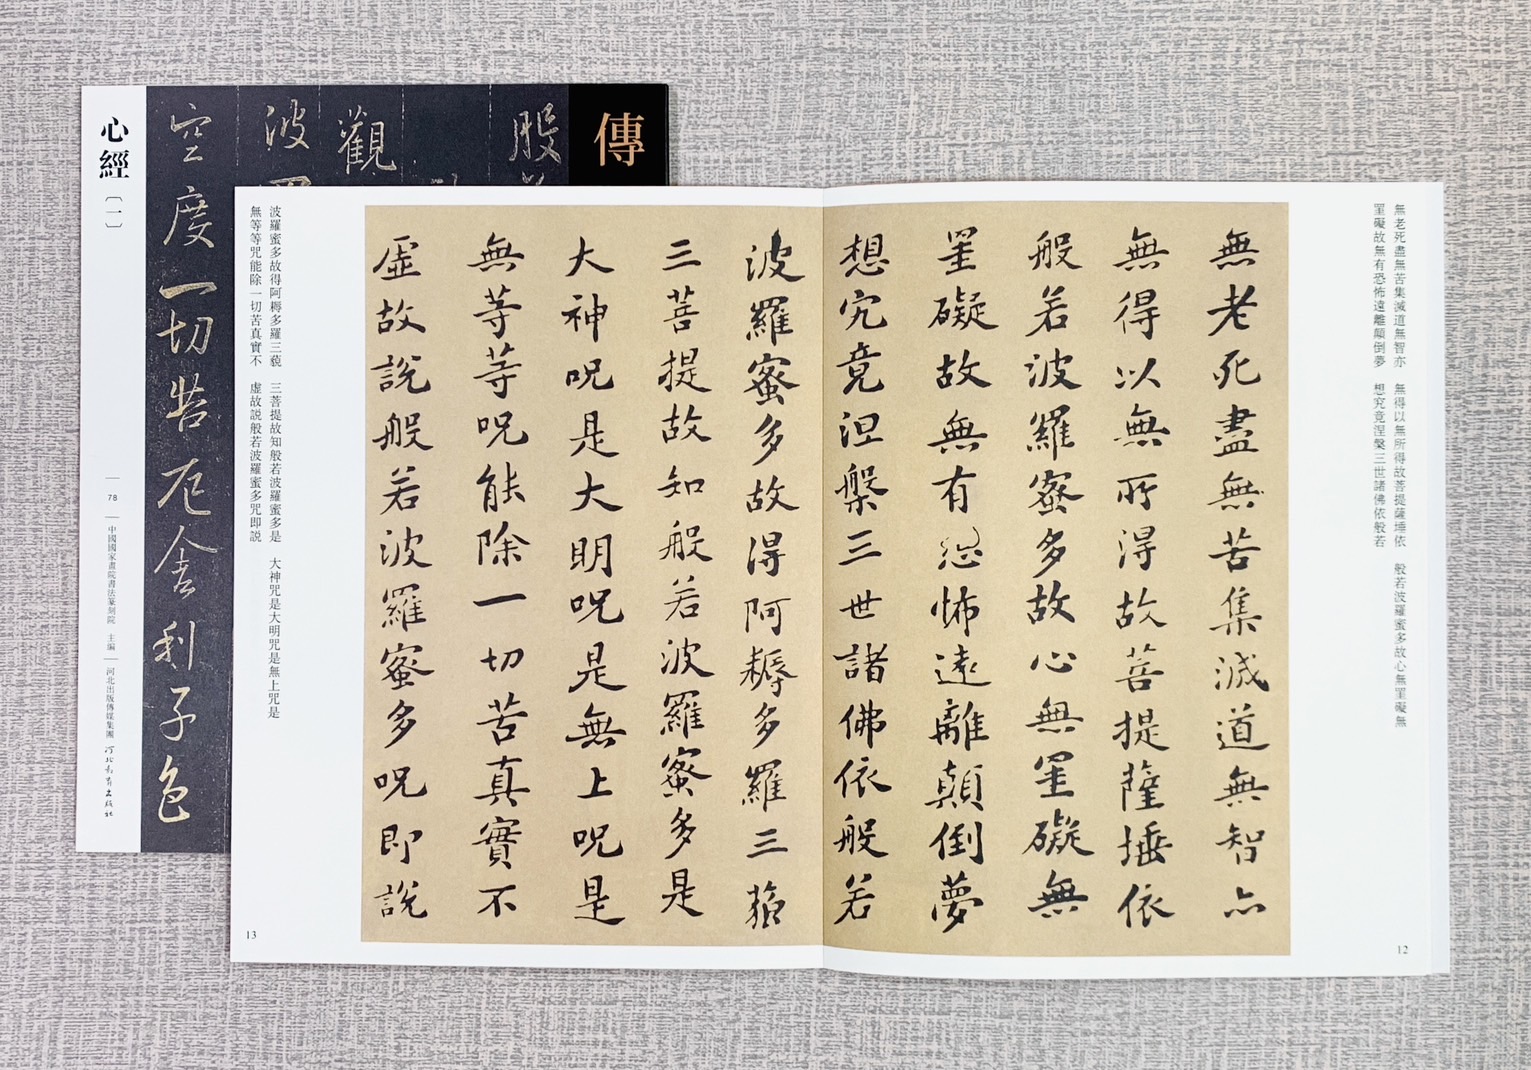 傳
股
觀
波
空度一切苦厄舍利子色
心經
〔一〕
78
中國國家畫院書法篆刻院 主編
河北出版傳媒集團
河北教育出版社
無老死盡無苦集滅道無智亦 無得以無所得故菩提薩埵依 般若波羅蜜多故心無罣礙無
罣礙故無有恐怖遠離顛倒夢 想究竟涅槃三世諸佛依般若
無老死盡無苦集滅道無智亦
無得以無所得故菩提薩埵依
般若波羅蜜多故心無罣礙無
罣礙故無有恐怖遠離顛倒夢
想究竟涅槃三世諸佛依般若
12
波羅蜜多故得阿耨多羅三藐
三菩提故知般若波羅蜜多是
大神呪是大明呪是無上呪是
無等等呪能除一切苦真實不
虛故說般若波羅蜜多呪即說
波羅蜜多故得阿耨多羅三藐 三菩提故知般若波羅蜜多是 大神咒是大明咒是無上咒是
無等等咒能除一切苦真實不 虛故説般若波羅蜜多咒即説
13